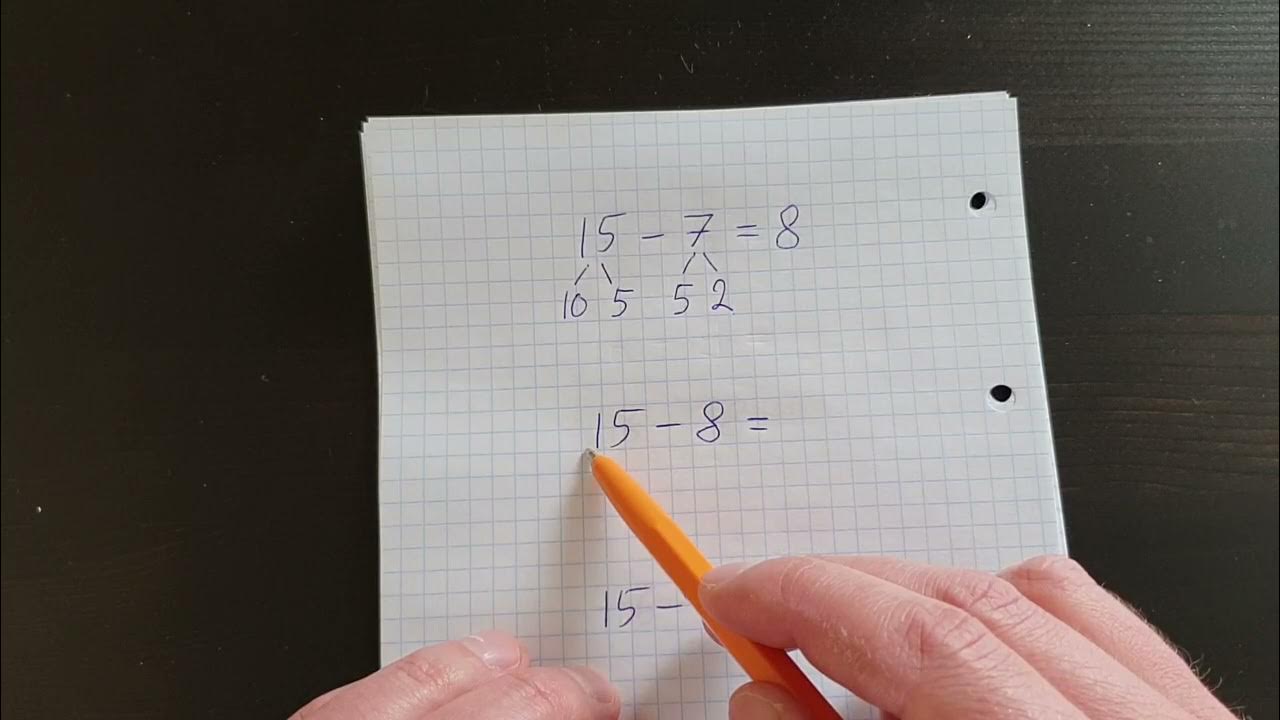 15 - 7 = 8
10 5 5 2
15 - 8 =
15 -